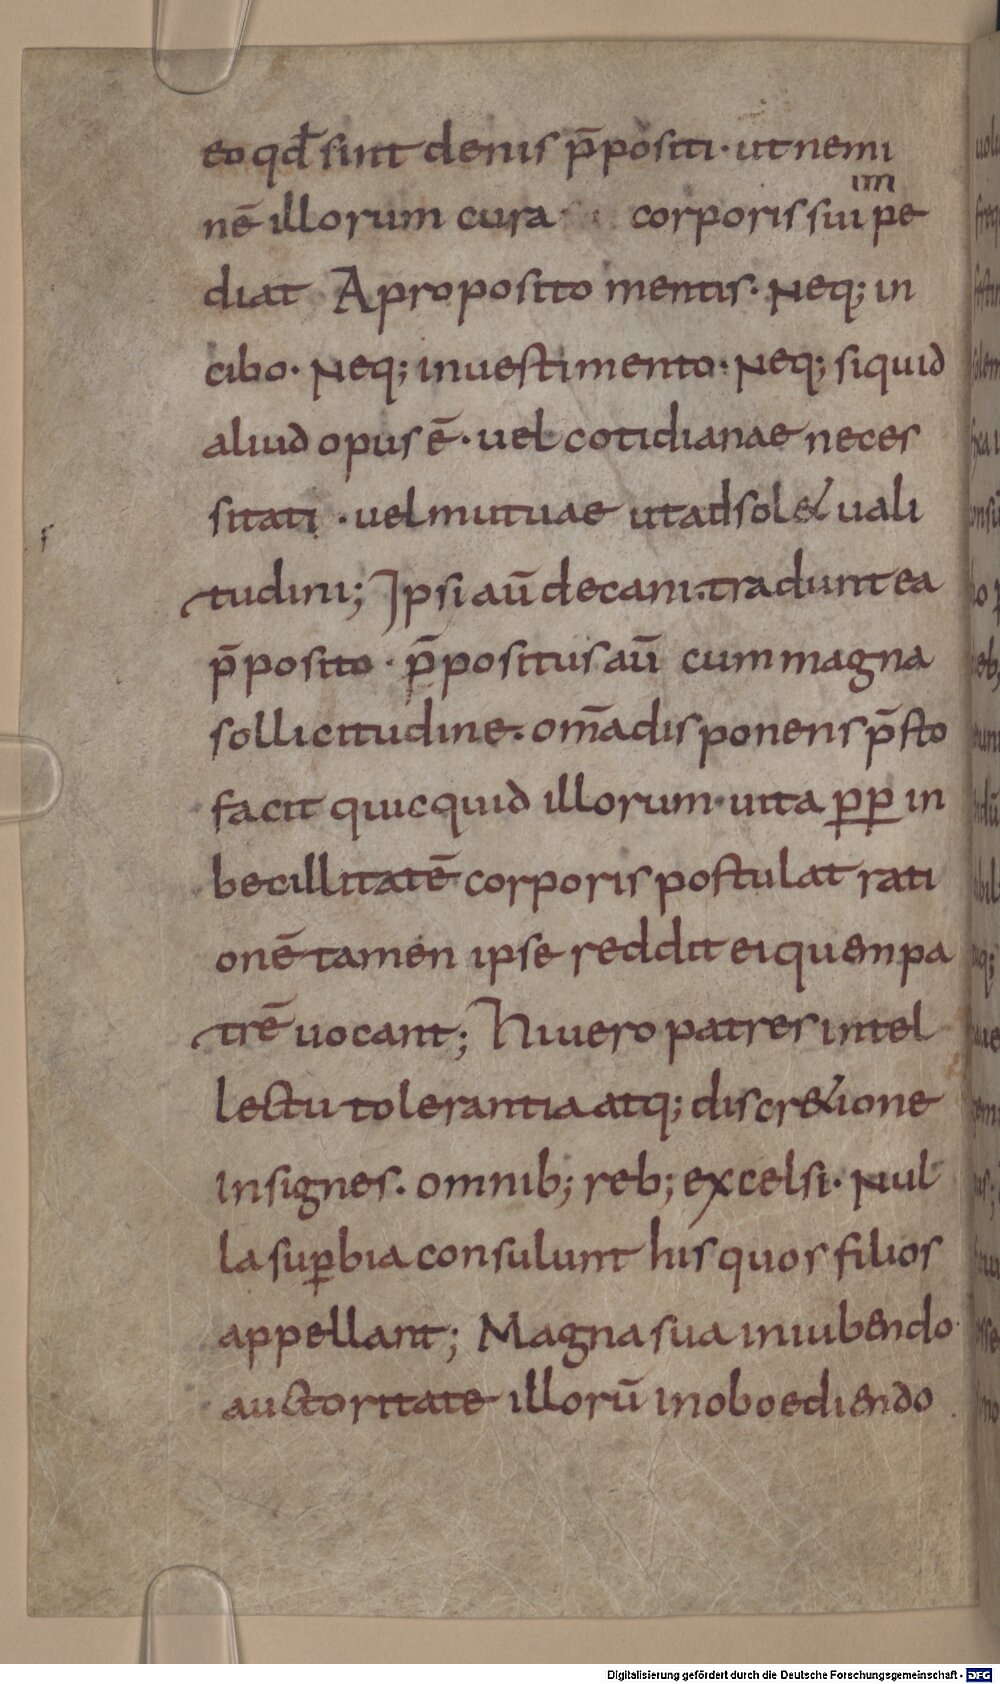 eo qđ sint denis p̄positi · ut nemi
im
nē illorum cura corporis sui pe
diat A proposito mentis · Neq; in
cibo · Neq; in uestimento · Neq; siquid
aliud opus ē · uel cotidianae neces
sitati · uel mutuae ut adsol& uali
tudini; Ipsi aū decani · tradunt ea
p̄posito · p̄positus aū cum magna
sollicitudine · om̄a disponens p̄sto
facit quicquid illorum uita pp̱ in
becillitatē corporis postulat rati
onē tamen ipse reddit ei quem pa
trē uocant; Hi uero patres intel
lectu tolerantia atq; discr&ione
insignes · omnib; reb; excelsi · Nul
la suꝑbia consulunt his quos filios
appellant; Magna sua in iubendo
auctoritate illorū in oboediendo
Digitalisierung gefördert durch die Deutsche Forschungsgemeinschaft - DFG